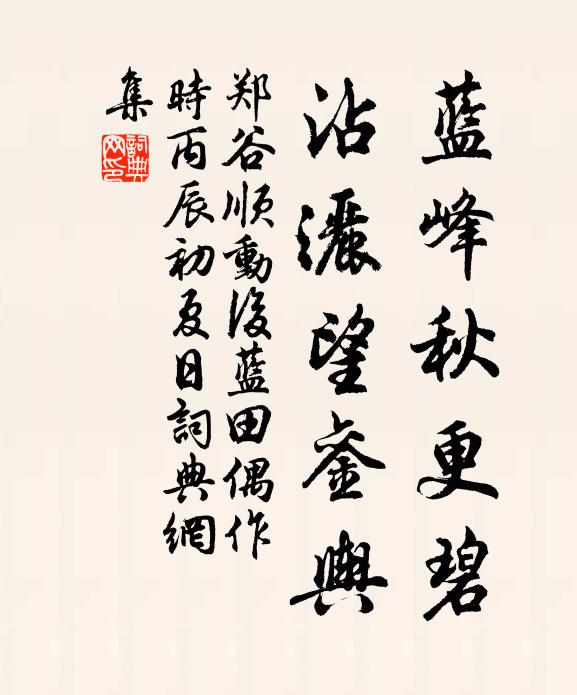 藍峰秋更碧
沾灑望銮輿
郑谷順動後藍田偶作
時丙辰初夏日詞典網
集
詞典
网印